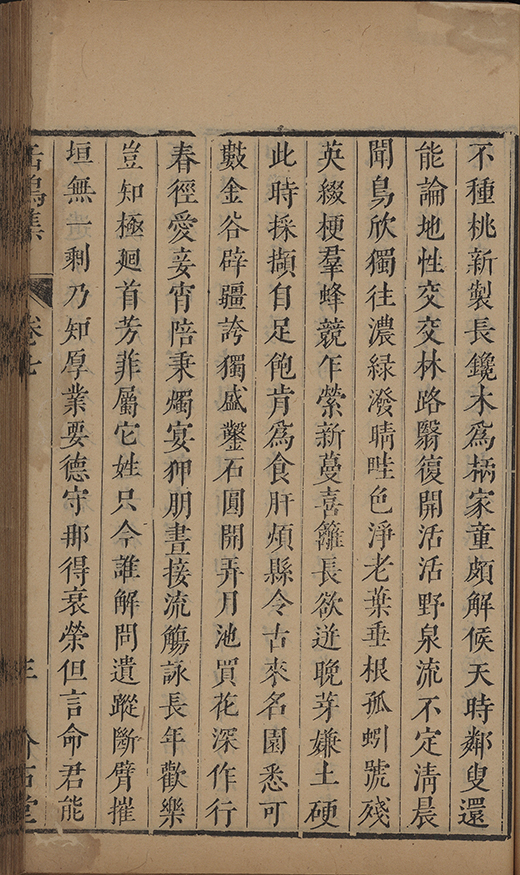 不種桃新製長鑱木爲柄家童頗解候天時鄰叟還
能論地性交交林路翳復開活活野泉流不定淸晨
聞鳥欣獨往濃綠潑晴畦色淨老葉垂根孤蚓號殘
英綴梗羣蜂競乍縈新蔓喜籬長欲迸晚芽嫌土硬
此時採擷自足飽肯爲食肝煩縣令古來名園悉可
數金谷辟疆誇獨盛鑿石圓開弄月池買花深作行
春徑愛妾宵陪秉燭宴狎朋晝接流觴詠長年歡樂
豈知極廻首芳菲屬它姓只今誰解問遺蹤斷臂摧
垣無一剩乃知厚業要德守那得衰榮但言命君能
卷七
三